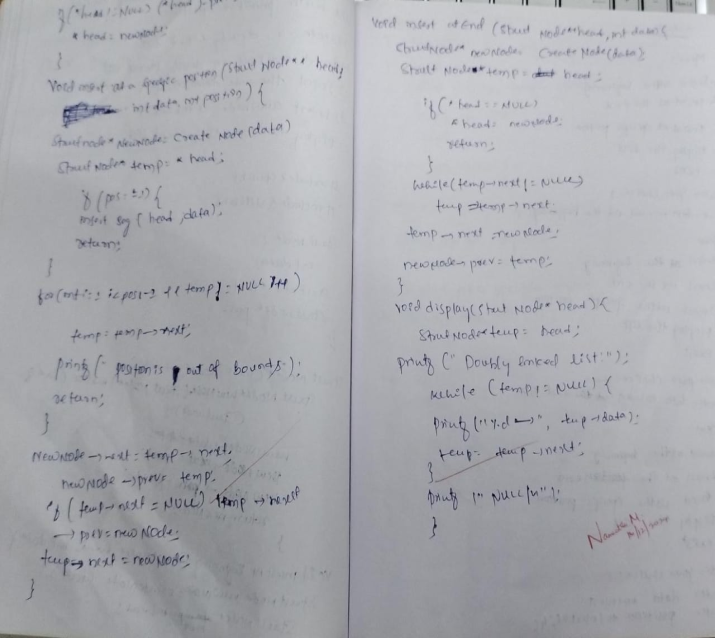 }(*head != NULL) (*head)
*head = newNode;
}
Void insert at a specific position (Struct Node** head,
int data, int position) {
Struct node* NewNode = Create Node (data)
Struct Node* temp = * head;
if (pos == 1) {
insert Beg ( head, data);
return;
}
for(int i=1 i<pos-1 && temp != NULL i++)
temp = temp → next;
printf (" position is out of bounds:");
return;
}
NewNode → next = temp → next,
newNode → prev = temp,
if (temp → next = NULL) temp → next
→ prev = new Node;
temp → next = newNode;
}
Void insert at End (Struct Node** head, int data) {
Struct Node* newNode = Create Node (data);
Struct Node* temp = head;
if (*head == NULL)
*head = newNode;
return;
}
while (temp → next != NULL)
temp = temp → next
temp → next = newNode;
newNode → prev = temp;
}
void display (Strut Node* head) {
Strut Node* temp = head;
printf (" Doubly linked list:");
while (temp != NULL) {
printf ("%d ↔", temp → data);
temp = temp → next;
}
printf (" NULL \n");
}